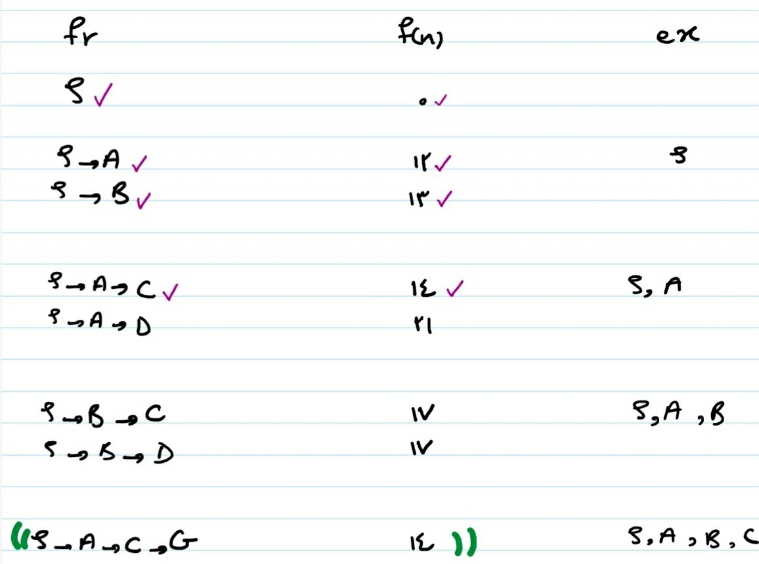 fr f(n) ex
S ✓ ۰ ✓
S → A ✓ ۱۲ ✓ S
S → B ✓ ۱۳ ✓
S → A → C ✓ ۱٤ ✓ S, A
S → A → D ۲۱
S → B → C ۱۷ S, A, B
S → B → D ۱۷
((S → A → C → G ۱٤ )) S, A, B, C